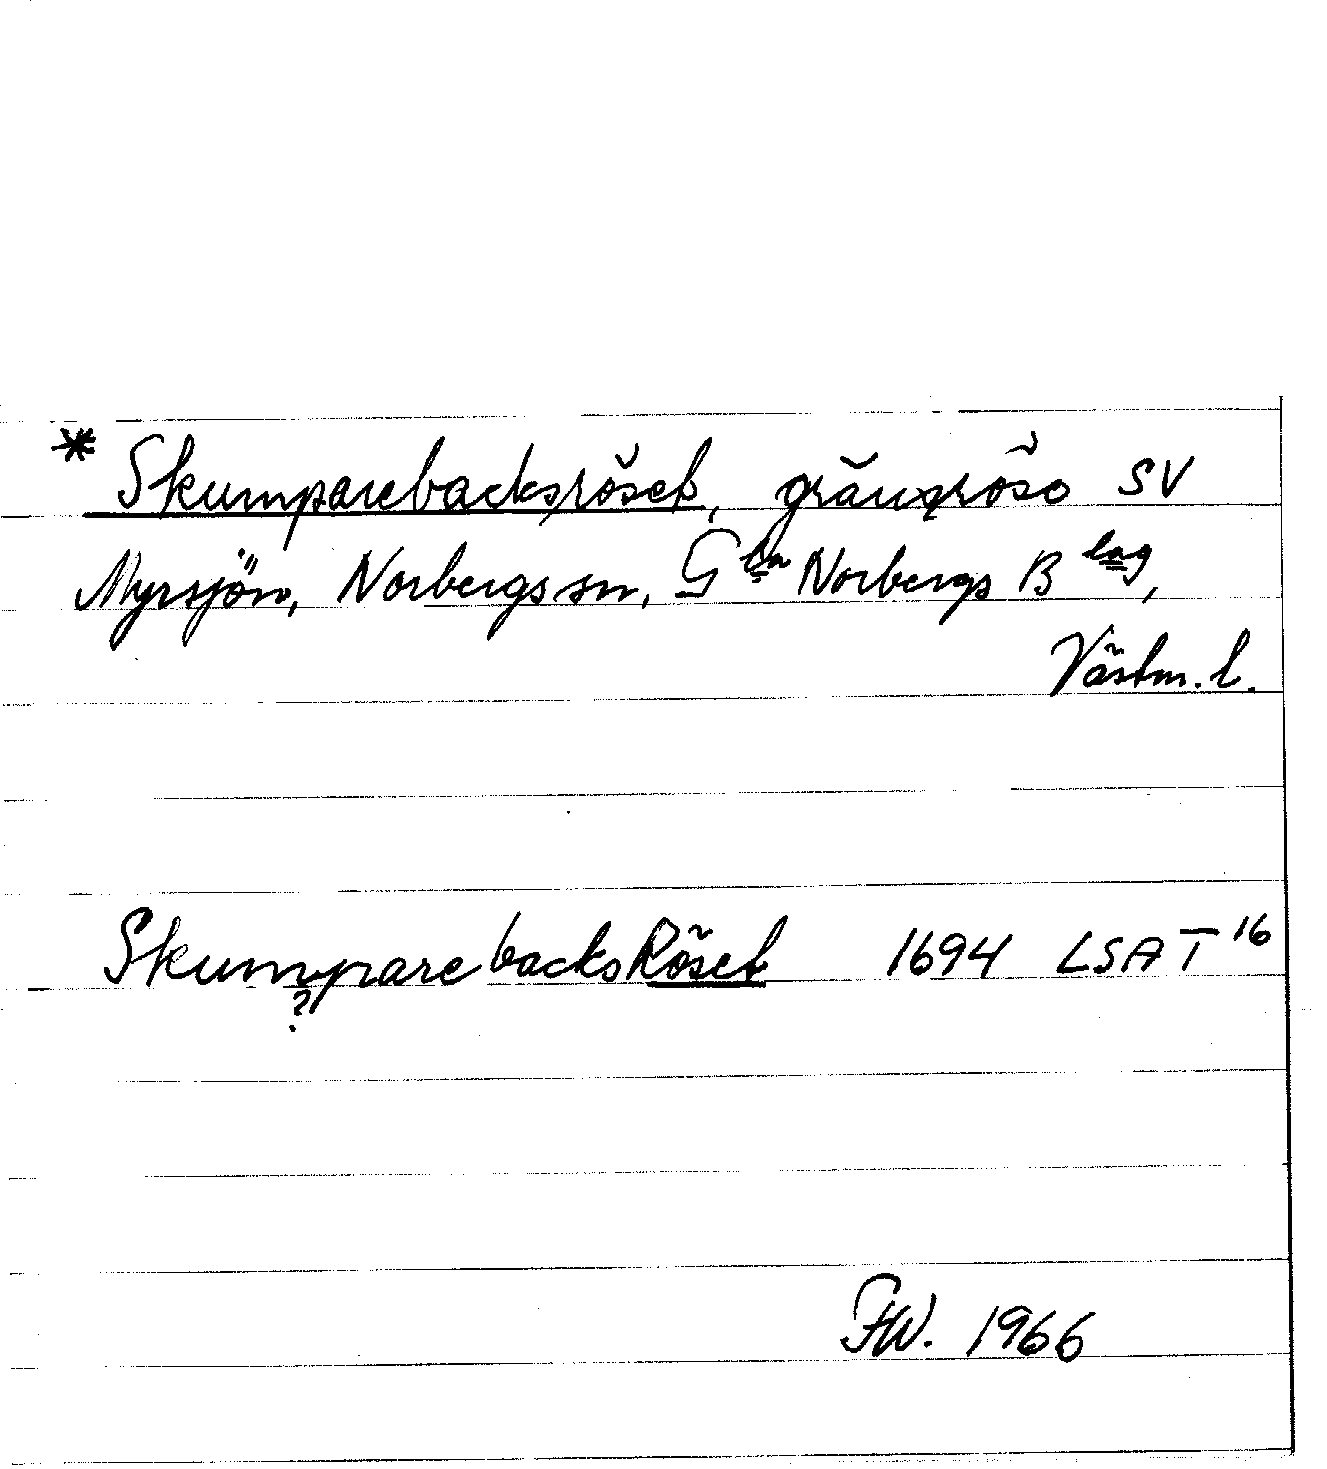 * Skumparebacksröset, gränsröse SV
Myrsjön, Norbergs sn, G<sup>la</sup> Norbergs B<sup>lag</sup>,
Västm. l.
SkumparebacksRöset 1694 LSA T<sup>16</sup>
?
FW. 1966